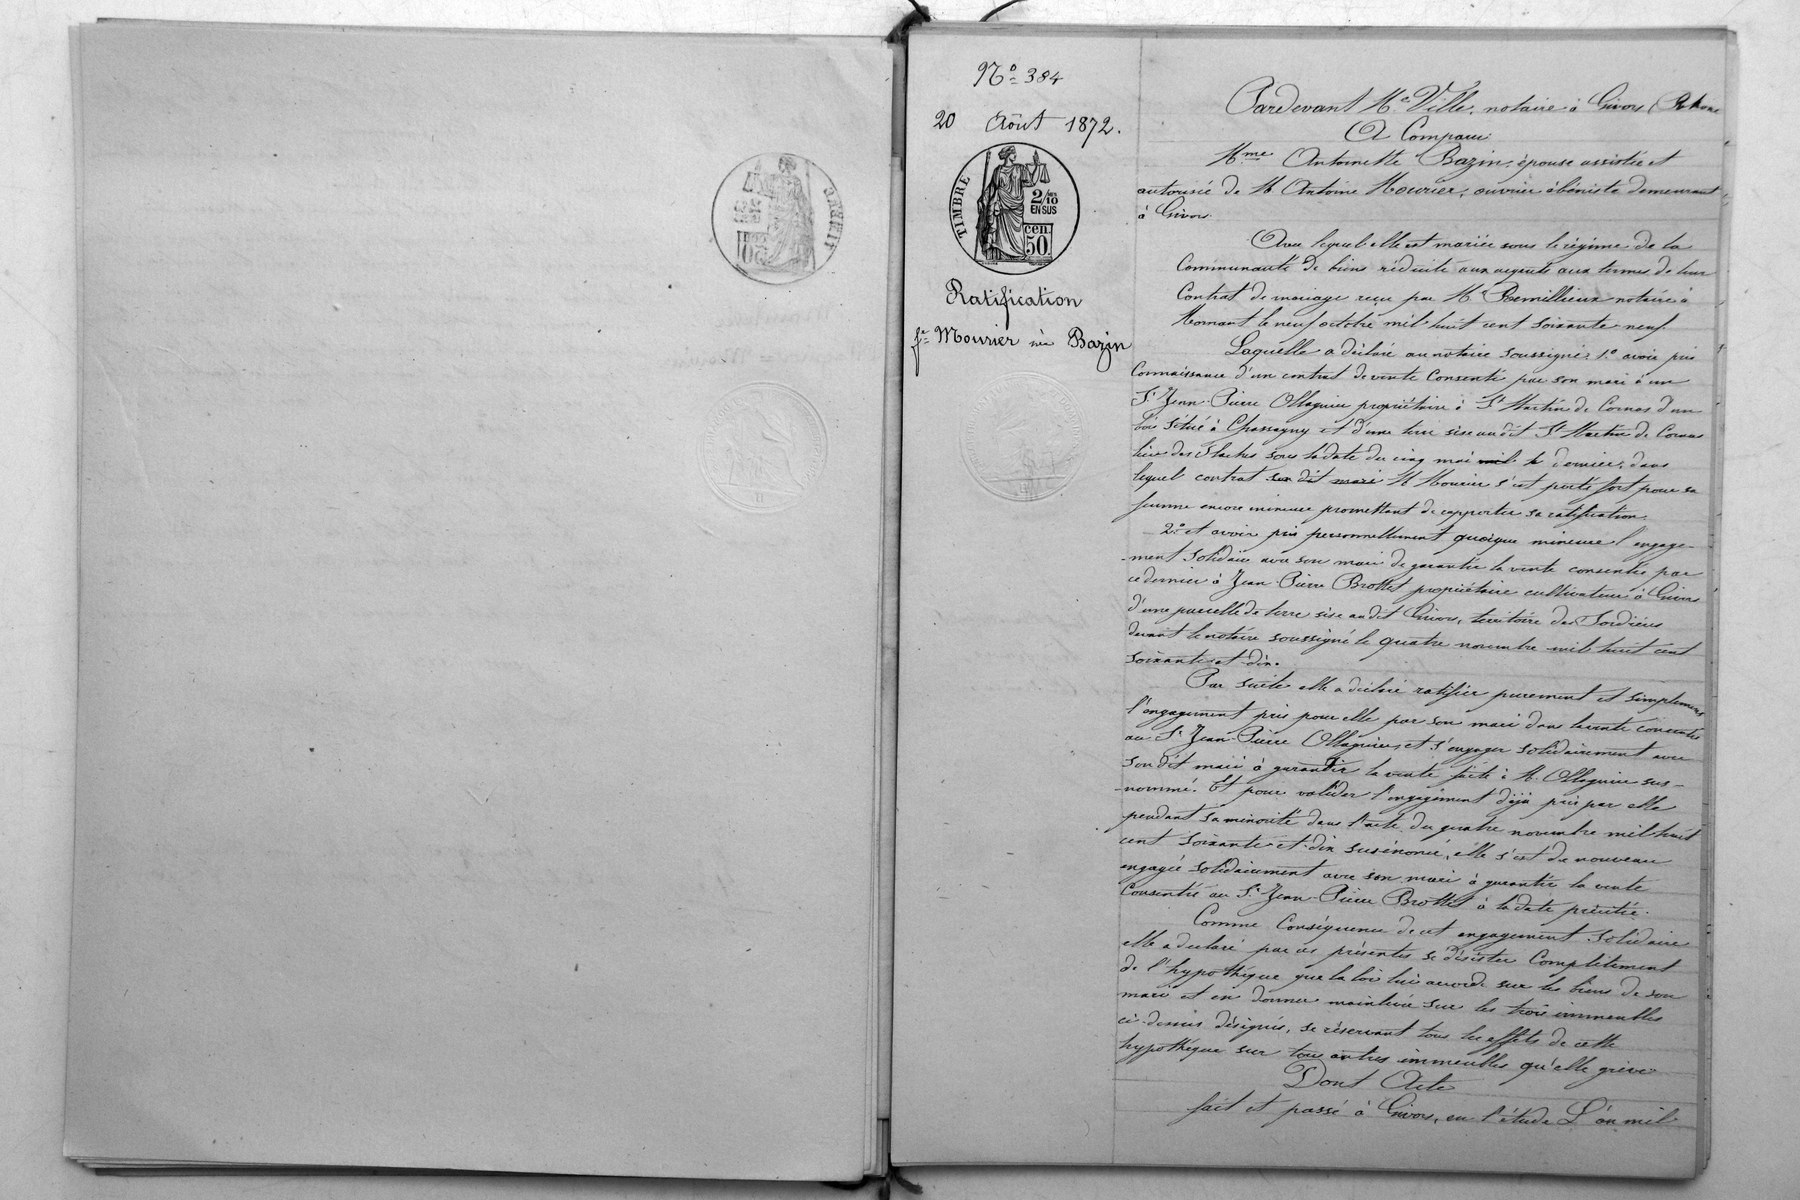 No 384
20 Août 1872.
TIMBRE
2/10
EN SUS
cen.
50.
Ratification
fe Mourier née Bazin
Pardevant Me Ville, notaire à Givors (Rhône
A Comparu
Mme Antoinette Bazin, épouse assistée et
autorisée de M Antoine Mourier, ouvrier ébéniste demeurant
à Givors.
Avec lequel elle est mariée sous le régime de la
Communauté de biens réduite aux acquêts aux termes de leur
Contrat de mariage reçu par Me Remillieux notaire à
Mornant le neuf octobre mil huit cent soixante neuf.
Laquelle a déclaré au notaire soussigné: 1o avoir pris
Connaissance d'un contrat de vente Consenti par son mari à un
Sr Jean-Pierre Ollagnier propriétaire à St Martin de Cornas d'un
bois situé à Chassagny et d'une terre sise audit St Martin de Cornas
lieu des Flaches sous la date du cinq mai mil dernier, dans
lequel contrat son dit mari M Mourier s'est porté fort pour sa
femme encore mineure promettant de rapporter sa ratification.
2o et avoir pris personnellement quoique mineure l'engage-
-ment solidaire avec son mari de garantir la vente consentie par
ce dernier à Jean-Pierre Brottet propriétaire cultivateur à Givors
d'une parcelle de terre sise audit Givors, territoire des
devant le notaire soussigné le quatre novembre mil huit cent
soixante et dix.
Par suite elle a déclaré ratifier purement et simplement
l'engagement pris pour elle par son mari dans la vente consentie
au Sr Jean-Pierre Ollagnier, et s'engager solidairement avec
son dit mari à garantir la vente faite à M. Ollagnier sus-
-nommé. Et pour valider l'engagement déjà pris par elle
pendant sa minorité dans l'acte du quatre novembre mil huit
cent soixante et dix susénoncé, elle s'est de nouveau
engagée solidairement avec son mari à garantir la vente
Consentie au Sr Jean-Pierre Brottet à la date précitée.
Comme Conséquence de cet engagement solidaire
elle a déclaré par ces présentes se désister Complètement
de l'hypothèque que la loi lui accorde sur les biens de son
mari et en donner mainlevée sur les trois immeubles
ci-dessus désignés, se réservant tous les effets de cette
hypothèque sur tous autres immeubles qu'elle grève
Dont Acte
fait et passé à Givors, en l'étude L'an mil